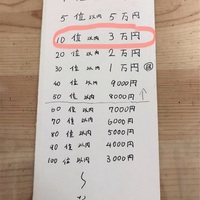 5 位 以内 5 万円
10 位 以内 3 万円
20 位 以内 2 万円
30 位 以内 1 万円
40 位 以内 9000円
50 位 以内 8000円 ↑
60 位 以内 7000円
70 位 以内 6000円
80 位 以内 5000円
90 位 以内 4000円
100 位 以内 3000円
〜